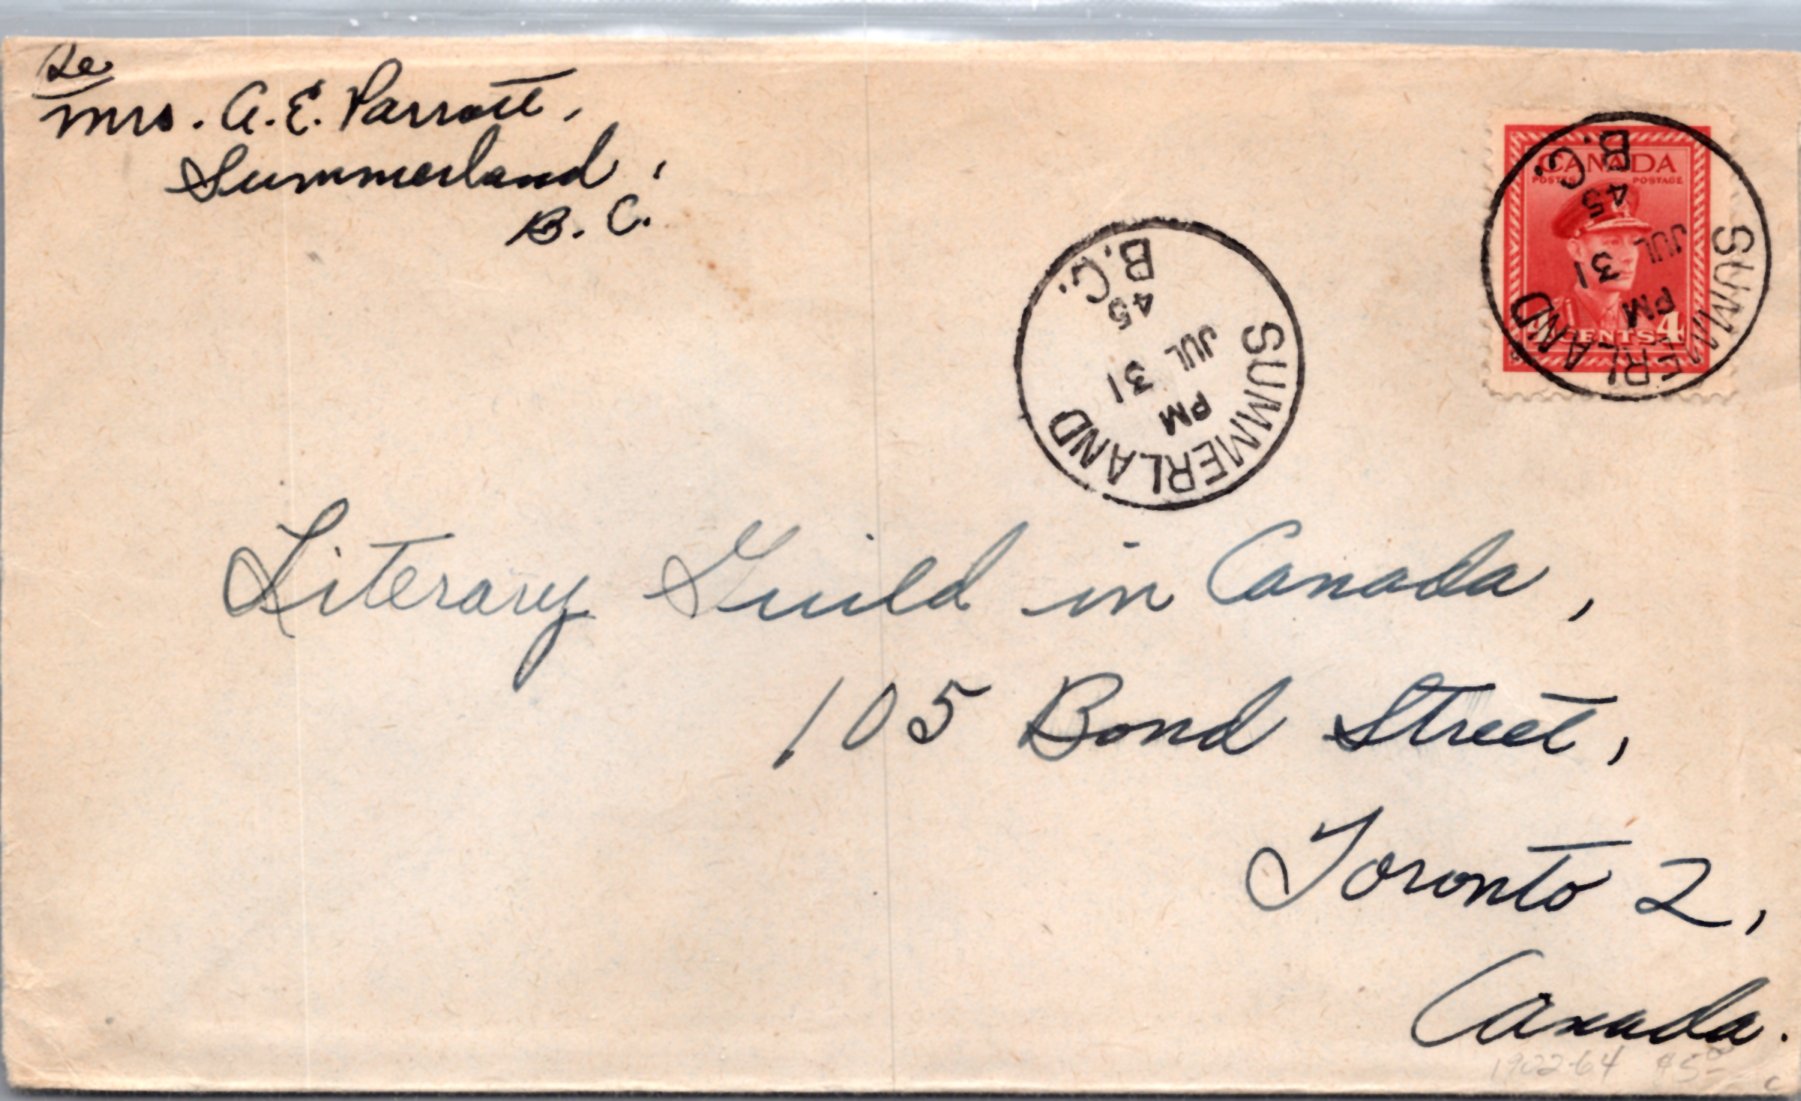 Re
Mrs. A. E. Parrott,
Summerland,
B. C.
CANADA
POSTES POSTAGE
CENTS 4
SUMMERLAND
PM
JUL 31
45
B.C.
SUMMERLAND
PM
JUL 31
45
B.C.
Literary Guild in Canada,
105 Bond Street,
Toronto 2,
Canada.
1902-64